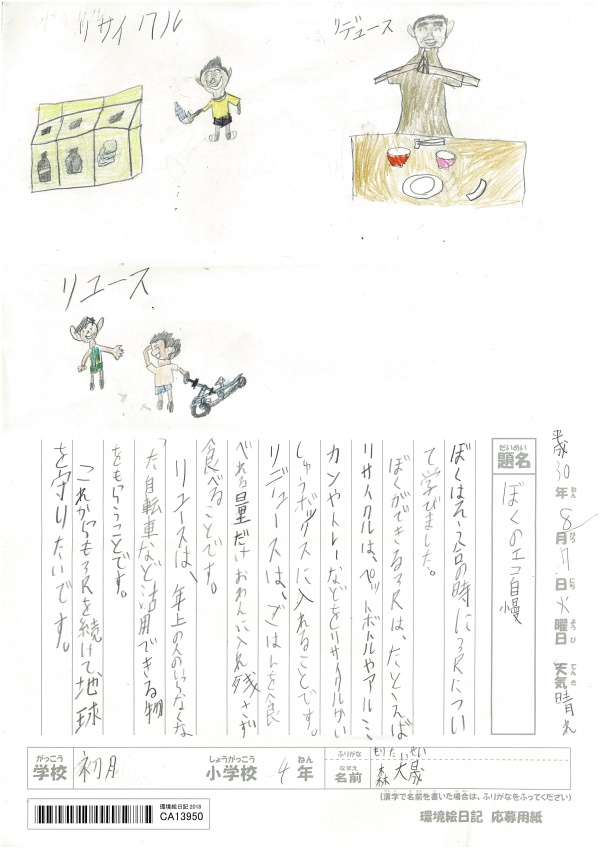 リサイクル
リデュース
リユース
平成30年8月7日火曜日 天気晴れ
ねん がつ にち ようび てんき
だいめい
題名
ぼくのエコ自慢
ぼくはそう合の時に3Rについ
て学びました。
ぼくができる3Rは、たといえば
リサイクルは、ペットボトルやアルミ
カンやトレーなどをリサイクルかい
しゅうボックスに入れることです。
リデュースは、ごはんを食
べれる量だけおわんに入れ残さず
食べることです。
リユースは、年上の人のいらなくな
った自転車など活用できる物
をもらうことです。
これからも3Rを続けて、地球
を守りたいです。
がっこう
学校
初月
しょうがっこう
小学校
4
ねん
年
ふりがな
もりたいせい
なまえ
名前
森大晟
(漢字で名前を書いた場合は、ふりがなをふってください)
環境絵日記 2018
CA13950
環境絵日記 応募用紙